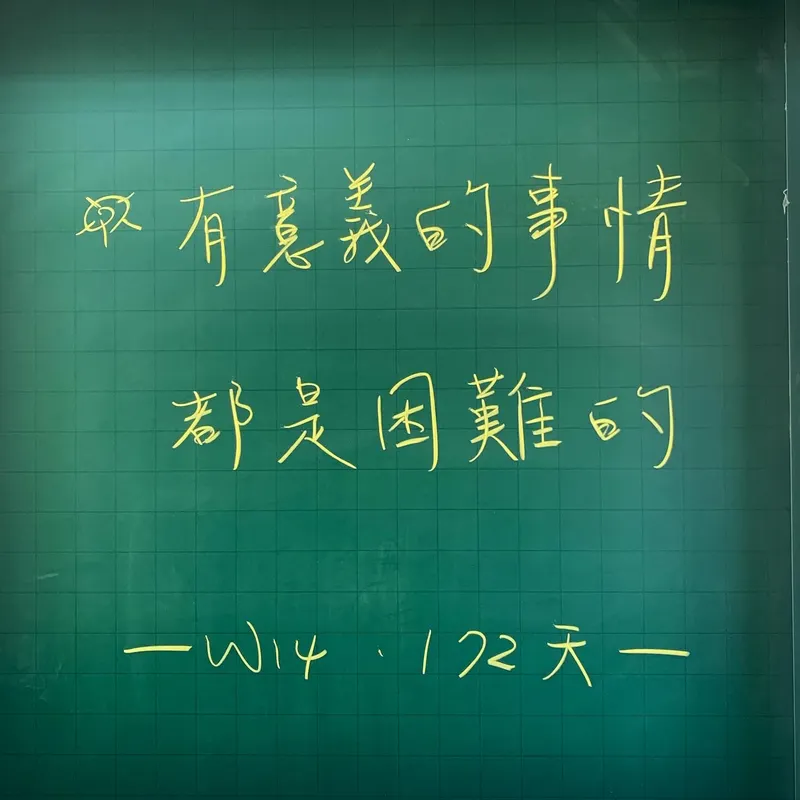 有意義的事情
都是困難的
—W14·172天—